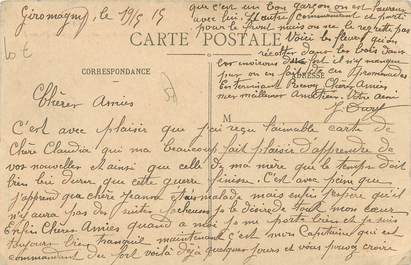 Giromagny, le 19/5 15
que c'est un bon garçon on est heureux
avec lui. L'autre commandant est parti
pour le front mais on ne le regrette pas
Voici les fleurs qu'on
récolte dans les bois dans
les environs du fort et il n'en manque
pas on en fait des promenades
En terminant Recevez Chères Amies
mes meilleures Amitiés. Votre ami
J.
CARTE POSTALE
CORRESPONDANCE
ADRESSE
M
Chères Amies
C'est avec plaisir que j'ai reçu l'aimable carte de
Chère Claudia qui m'a beaucoup fait plaisir d'apprendre de
vos nouvelles et ainsi que celle de ma mère que le temps doit
bien lui durer que cette guerre finisse. C'est avec peine que
j'apprend que chère Jeanne était malade mais enfin j'espère qu'il
n'y aura pas des suites fâcheuses je le désire de tout mon cœur
Enfin Chères Amies quand a moi je me porte bien et je suis
toujours bien tranquille maintenant c'est mon Capitaine qui est
commandant du fort voilà déjà quelques jours et vous pouvez croire